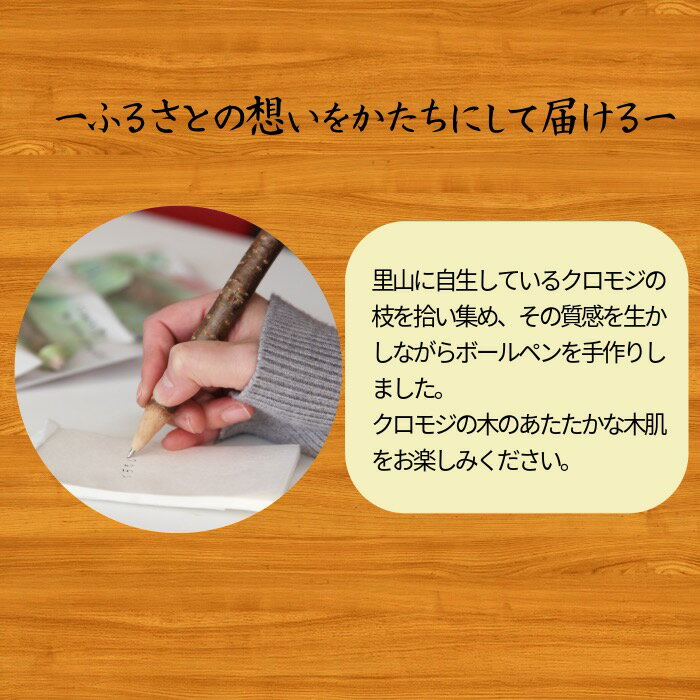 ーふるさとの想いをかたちにして届けるー
里山に自生しているクロモジの
枝を拾い集め、その質感を生か
しながらボールペンを手作りし
ました。
クロモジの木のあたたかな木肌
をお楽しみください。